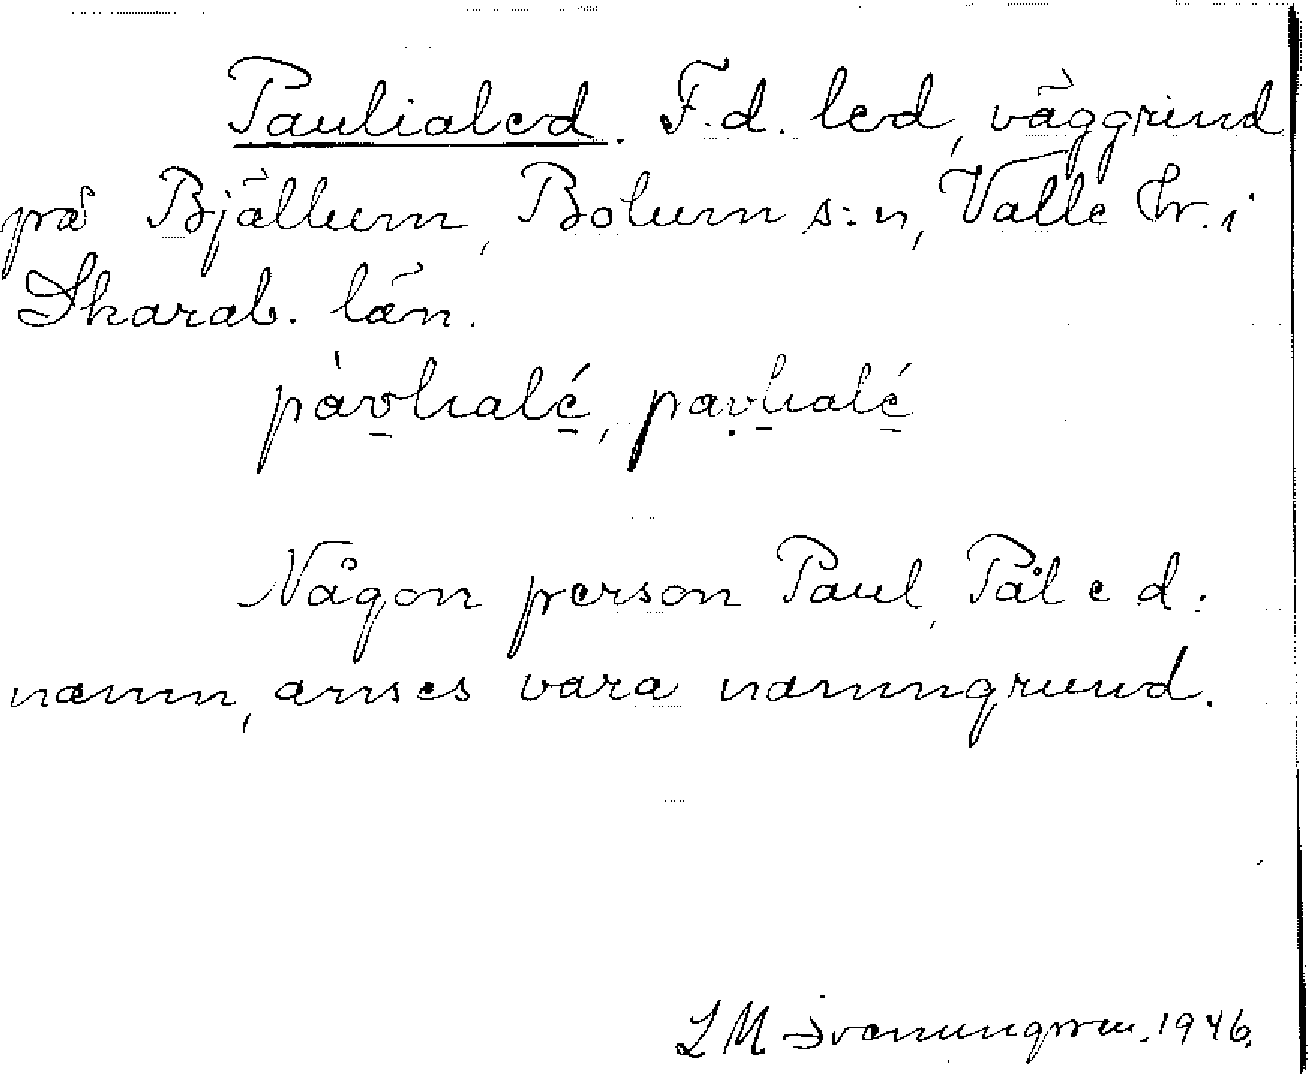 Paulialed. F.d. led, väggrind
på Bjällum, Bolum s:n, Valle hr. i
Skarab. län.
pàvlialé, pavlialé
Någon person Paul, Pål e d.
namn, anses vara namngrund.
L M Svanungren. 1946.